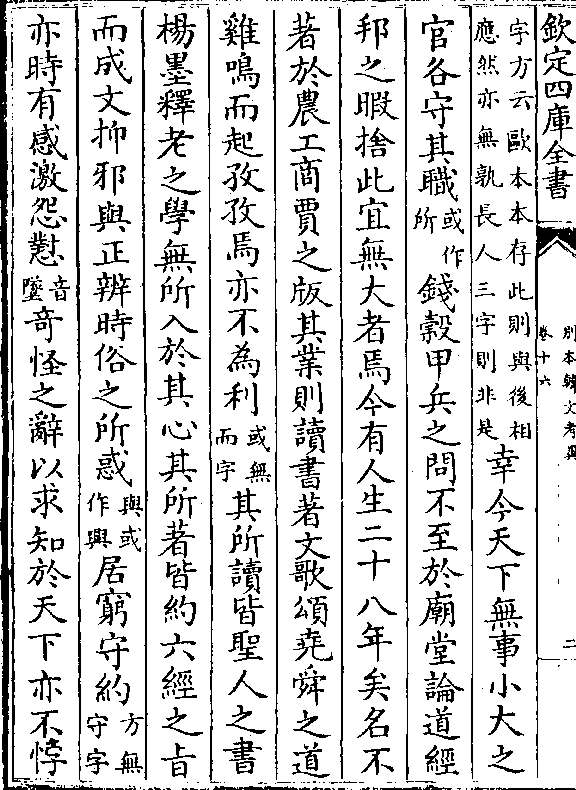 欽定四庫全書
別本韓文考異
卷十六
二
字方云歐本本存此則與後相
應然亦無孰長人三字則非是
幸今天下無事小大之
官各守其職
或作
所
錢穀甲兵之問不至於廟堂論道經
邦之暇捨此宜無大者焉今有人生二十八年矣名不
著於農工商賈之版其業則讀書著文歌頌堯舜之道
雞鳴而起孜孜焉亦不為利
或無
而字
其所讀皆聖人之書
楊墨釋老之學無所入於其心其所著皆約六經之㫖
而成文抑邪與正辨時俗之所惑
與或
作興
居窮守約
方無
守字
亦時有感激怨懟
音
墜
奇怪之辭以求知於天下亦不悖